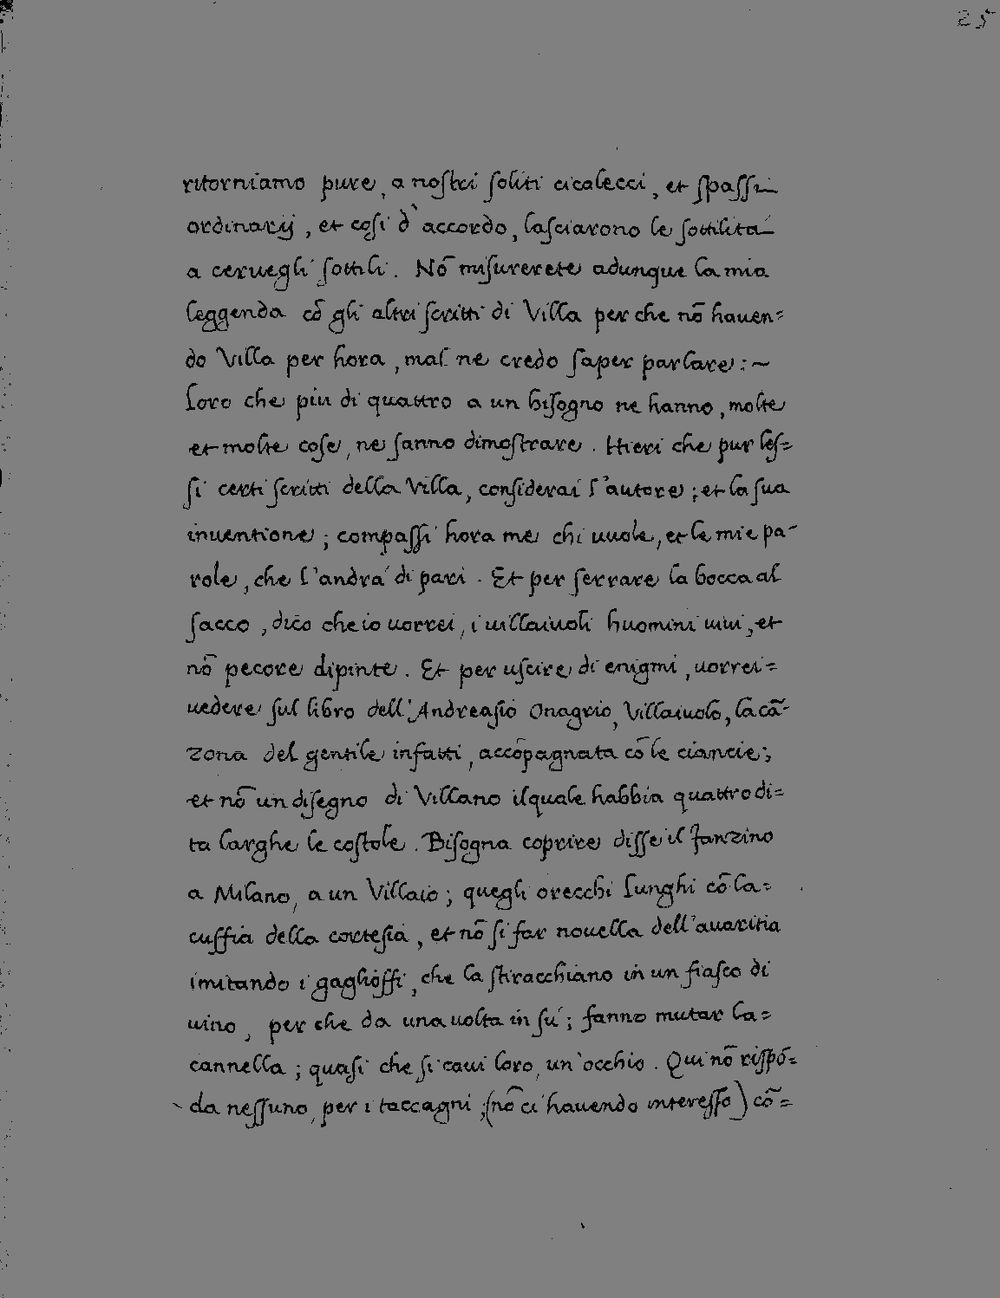 25
ritorniamo pure, a nostri soliti cicalecci, et spassi
ordinarij, et cosi d'accordo, lasciarono le sottilita
a ceruegli sottili. Nō misurerete adunque la mia
leggenda cō gli altri scritti di Villa per che nō hauen=
do Villa per hora, mal ne credo saper parlare: ~
loro che piu di quattro a un bisogno ne hanno, molte
et molte cose, ne sanno dimostrare. Hieri che pur les=
si certi scritti della Villa, considerai l'autore; et la sua
inuentione; compassi hora me chi uuole, et le mie pa-
role, che l'andrà di pari. Et per serrare la bocca al
sacco, dico che io uorrei, i uillaiuoli huomini uiui, et
nō pecore dipinte. Et per uscire di enigmi, uorrei=
uedere sul libro dell'Andreasio Onagrio, Villaiuolo, la cā-
zona del gentile infatti, accōpagnata cō le ciancie;
et nō un disegno di Villano ilquale habbia quattro di=
ta larghe le costole. Bisogna coprire disse il Janzino
a Milano, a un Villaio; quegli orecchi lunghi cō la=
cuffia della cortesia, et nō si far nouella dell'auaritia
imitando i gaglioffi, che la stiracchiano in un fiasco di
uino, per che da una uolta in sù; fanno mutar la=
cannella; quasi che si caui loro, un'occhio. Qui nō rispō=
da nessuno, per i taccagni; (nō ci hauendo interesso) cō=